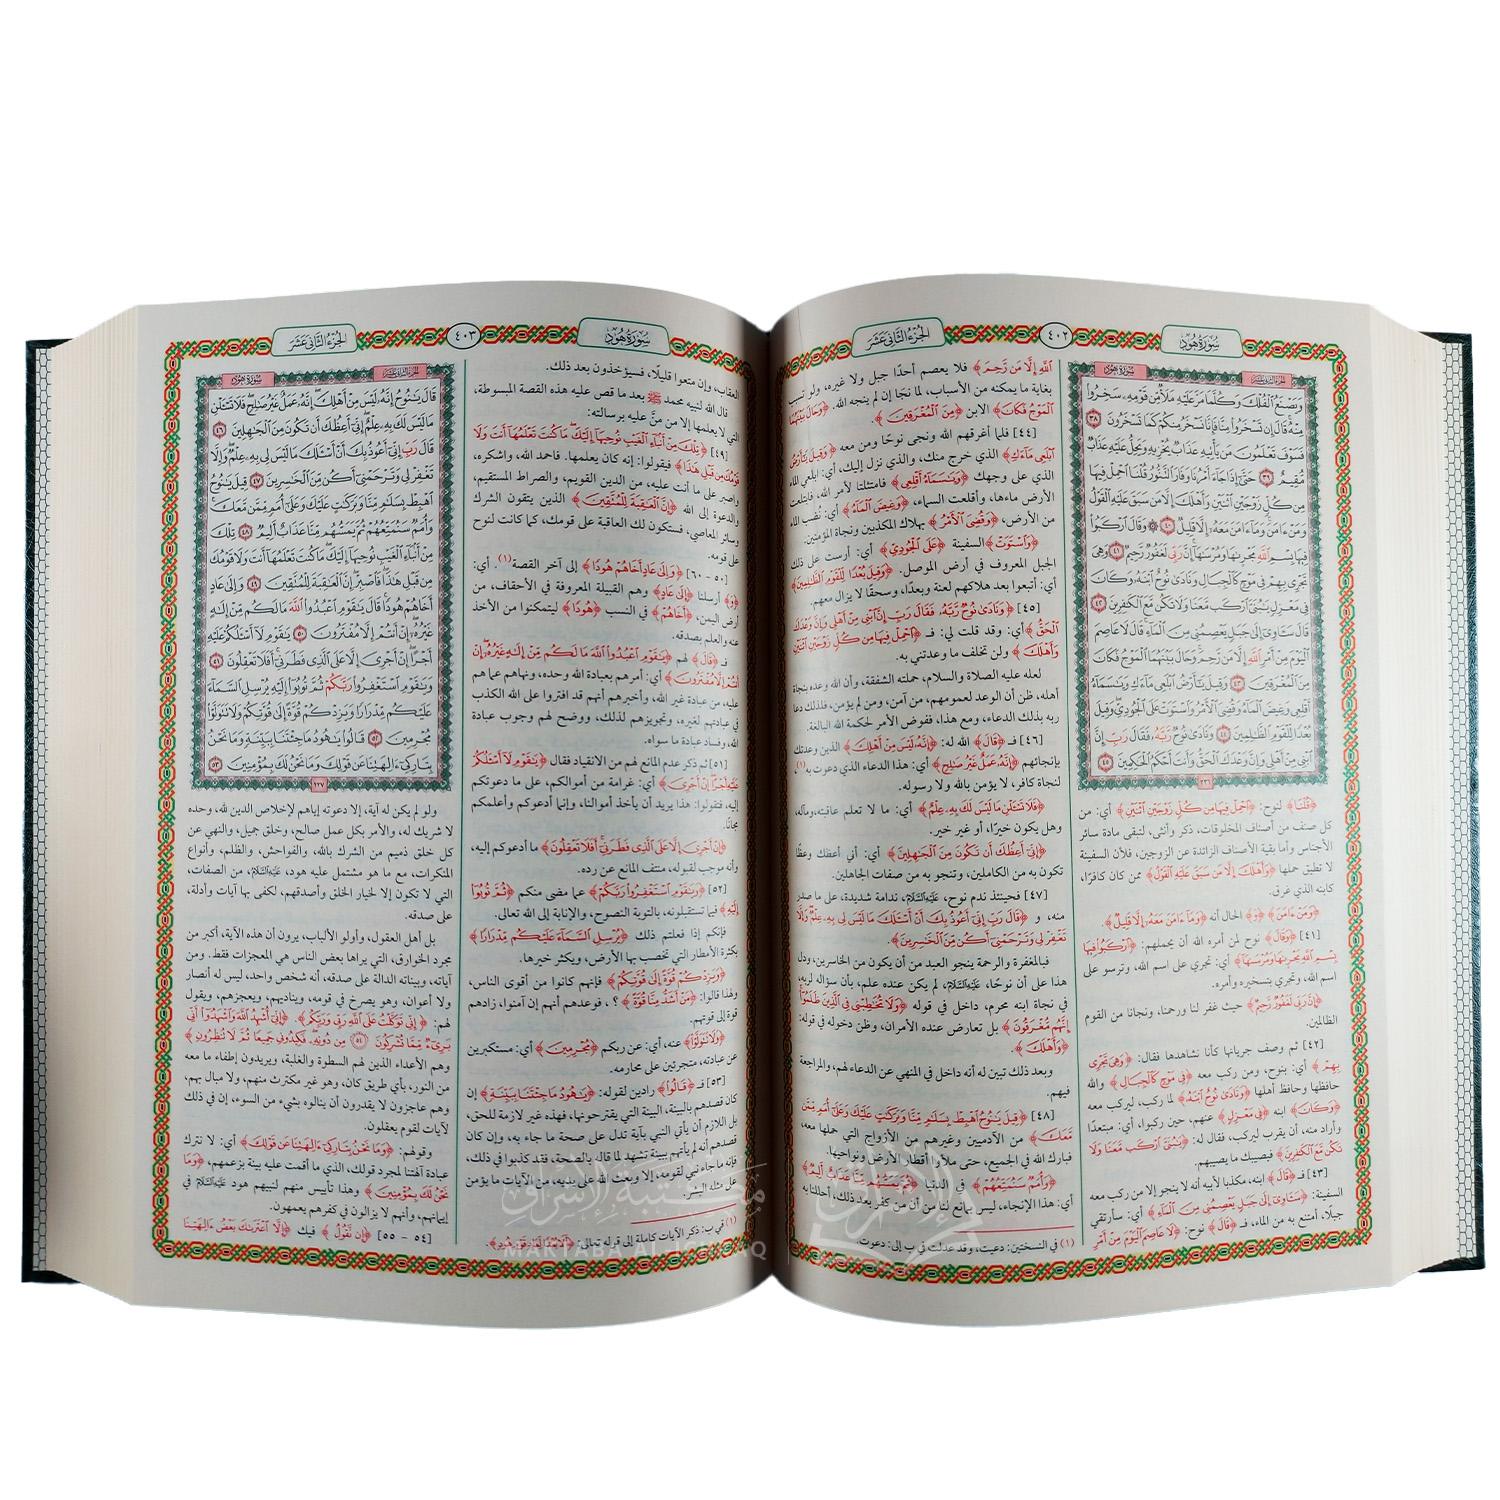 سُورَةُ هُودٍ
٤٠٢
الجُزْءُ الثَّانِي عَشَرَ
الجزء الثاني عشر
سورة هود
وَيَصْنَعُ ٱلْفُلْكَ وَكُلَّمَا مَرَّ عَلَيْهِ مَلَأٌ مِّن قَوْمِهِۦ سَخِرُواْ
مِنْهُ قَالَ إِن تَسْخَرُواْ مِنَّا فَإِنَّا نَسْخَرُ مِنكُمْ كَمَا تَسْخَرُونَ ٣٨
فَسَوْفَ تَعْلَمُونَ مَن يَأْتِيهِ عَذَابٌ يُخْزِيهِ وَيَحِلُّ عَلَيْهِ عَذَابٌ
مُّقِيمٌ ٣٩ حَتَّىٰٓ إِذَا جَآءَ أَمْرُنَا وَفَارَ ٱلتَّنُّورُ قُلْنَا ٱحْمِلْ فِيهَا
مِن كُلٍّ زَوْجَيْنِ ٱثْنَيْنِ وَأَهْلَكَ إِلَّا مَن سَبَقَ عَلَيْهِ ٱلْقَوْلُ
وَمَنْ ءَامَنَ وَمَآ ءَامَنَ مَعَهُۥٓ إِلَّا قَلِيلٌ ٤٠ وَقَالَ ٱرْكَبُواْ
فِيهَا بِسْمِ ٱللَّهِ مَجْر۪ىٰهَا وَمُرْسَىٰهَآ إِنَّ رَبِّى لَغَفُورٌ رَّحِيمٌ ٤١ وَهِىَ
تَجْرِى بِهِمْ فِى مَوْجٍ كَٱلْجِبَالِ وَنَادَىٰ نُوحٌ ٱبْنَهُۥ وَكَانَ
فِى مَعْزِلٍ يَٰبُنَىَّ ٱرْكَب مَّعَنَا وَلَا تَكُن مَّعَ ٱلْكَٰفِرِينَ ٤٢
قَالَ سَـَٔاوِىٓ إِلَىٰ جَبَلٍ يَعْصِمُنِى مِنَ ٱلْمَآءِ قَالَ لَا عَاصِمَ
ٱلْيَوْمَ مِنْ أَمْرِ ٱللَّهِ إِلَّا مَن رَّحِمَ وَحَالَ بَيْنَهُمَا ٱلْمَوْجُ فَكَانَ
مِنَ ٱلْمُغْرَقِينَ ٤٣ وَقِيلَ يَٰٓأَرْضُ ٱبْلَعِى مَآءَكِ وَيَٰسَمَآءُ
أَقْلِعِى وَغِيضَ ٱلْمَآءُ وَقُضِىَ ٱلْأَمْرُ وَٱسْتَوَتْ عَلَى ٱلْجُودِىِّ وَقِيلَ
بُعْدًا لِّلْقَوْمِ ٱلظَّٰلِمِينَ ٤٤ وَنَادَىٰ نُوحٌ رَّبَّهُۥ فَقَالَ رَبِّ إِنَّ
ٱبْنِى مِنْ أَهْلِى وَإِنَّ وَعْدَكَ ٱلْحَقُّ وَأَنتَ أَحْكَمُ ٱلْحَٰكِمِينَ ٤٥
٢٢٦
﴿قُلْنَا﴾ لنوح: ﴿ٱحْمِلْ فِيهَا مِن كُلٍّ زَوْجَيْنِ ٱثْنَيْنِ﴾ أي: من
كل صنف من أصناف المخلوقات، ذكر وأنثى، لتبقى مادة سائر
الأجناس وأما بقية الأصناف الزائدة عن الزوجين، فلأن السفينة
لا تطيق حملها ﴿وَأَهْلَكَ إِلَّا مَن سَبَقَ عَلَيْهِ ٱلْقَوْلُ﴾ ممن كان كافرًا،
كابنه الذي غرق.
﴿وَمَنْ ءَامَنَ﴾ ﴿وَ﴾ الحال أنه ﴿وَمَآ ءَامَنَ مَعَهُۥٓ إِلَّا قَلِيلٌ﴾.
[٤١] ﴿وَقَالَ﴾ نوح لمن أمره الله أن يحملهم: ﴿ٱرْكَبُواْ فِيهَا
بِسْمِ ٱللَّهِ مَجْر۪ىٰهَا وَمُرْسَىٰهَآ﴾ أي: تجري على اسم الله، وترسو على
اسم الله، وتجري بتسخيره وأمره.
﴿إِنَّ رَبِّى لَغَفُورٌ رَّحِيمٌ﴾ حيث غفر لنا ورحمنا، ونجانا من القوم
الظالمين.
[٤٢] ثم وصف جريانها كأنا نشاهدها فقال: ﴿وَهِىَ تَجْرِى
بِهِمْ﴾ أي: بنوح، ومن ركب معه ﴿فِى مَوْجٍ كَٱلْجِبَالِ﴾ والله
حافظها وحافظ أهلها ﴿وَنَادَىٰ نُوحٌ ٱبْنَهُۥ﴾ لما ركب، ليركب معه
﴿وَكَانَ﴾ ابنه ﴿فِى مَعْزِلٍ﴾ عنهم، حين ركبوا، أي: مبتعدًا
وأراد منه، أن يقرب ليركب، فقال له: ﴿يَٰبُنَىَّ ٱرْكَب مَّعَنَا وَلَا
تَكُن مَّعَ ٱلْكَٰفِرِينَ﴾ فيصيبك ما يصيبهم.
[٤٣] فـ ﴿قَالَ﴾ ابنه، مكذبا لأبيه أنه لا ينجو إلا من ركب معه
السفينة: ﴿سَـَٔاوِىٓ إِلَىٰ جَبَلٍ يَعْصِمُنِى مِنَ ٱلْمَآءِ﴾ أي: سأرتقي
جبلًا، أمتنع به من الماء، فـ ﴿قَالَ﴾ نوح: ﴿لَا عَاصِمَ ٱلْيَوْمَ مِنْ أَمْرِ
ٱللَّهِ إِلَّا مَن رَّحِمَ﴾ فلا يعصم أحدًا جبل ولا غيره، ولو تسبب
بغاية ما يمكنه من الأسباب، لما نجا إن لم ينجه الله. ﴿وَحَالَ بَيْنَهُمَا
ٱلْمَوْجُ فَكَانَ﴾ الابن ﴿مِنَ ٱلْمُغْرَقِينَ﴾.
[٤٤] فلما أغرقهم الله ونجى نوحًا ومن معه ﴿وَقِيلَ يَٰٓأَرْضُ
ٱبْلَعِى مَآءَكِ﴾ الذي خرج منك، والذي نزل إليك، أي: ابلعي الماء
الذي على وجهك ﴿وَيَٰسَمَآءُ أَقْلِعِى﴾ فامتثلتا لأمر الله، فابتلعت
الأرض ماءها، وأقلعت السماء، ﴿وَغِيضَ ٱلْمَآءُ﴾ أي: نُضب الماء
من الأرض، ﴿وَقُضِىَ ٱلْأَمْرُ﴾ بهلاك المكذبين ونجاة المؤمنين.
﴿وَٱسْتَوَتْ﴾ السفينة ﴿عَلَى ٱلْجُودِىِّ﴾ أي: أرست على ذلك
الجبل المعروف في أرض الموصل. ﴿وَقِيلَ بُعْدًا لِّلْقَوْمِ ٱلظَّٰلِمِينَ﴾
أي: أتبعوا بعد هلاكهم لعنة وبعدا، وسحقًا لا يزال معهم.
[٤٥] ﴿وَنَادَىٰ نُوحٌ رَّبَّهُۥ فَقَالَ رَبِّ إِنَّ ٱبْنِى مِنْ أَهْلِى وَإِنَّ وَعْدَكَ
ٱلْحَقُّ﴾ أي: وقد قلت لي: فـ ﴿ٱحْمِلْ فِيهَا مِن كُلٍّ زَوْجَيْنِ ٱثْنَيْنِ
وَأَهْلَكَ﴾ ولن تخلف ما وعدتني به.
لعله عليه الصلاة والسلام، حملته الشفقة، وأن الله وعده بنجاة
أهله، ظن أن الوعد لعمومهم، من آمن، ومن لم يؤمن، فلذلك دعا
ربه بذلك الدعاء، ومع هذا، ففوض الأمر لحكمة الله البالغة.
[٤٦] فـ ﴿قَالَ﴾ الله له: ﴿إِنَّهُۥ لَيْسَ مِنْ أَهْلِكَ﴾ الذين وعدتك
بإنجائهم ﴿إِنَّهُۥ عَمَلٌ غَيْرُ صَٰلِحٍ﴾ أي: هذا الدعاء الذي دعوت به(١)،
لنجاة كافر، لا يؤمن بالله ولا رسوله.
﴿فَلَا تَسْـَٔلْنِ مَا لَيْسَ لَكَ بِهِۦ عِلْمٌ﴾ أي: ما لا تعلم عاقبته، ومآله،
وهل يكون خيرًا، أو غير خير.
﴿إِنِّىٓ أَعِظُكَ أَن تَكُونَ مِنَ ٱلْجَٰهِلِينَ﴾ أي: أني أعظك وعظًا
تكون به من الكاملين، وتنجو به من صفات الجاهلين.
[٤٧] فحينئذ ندم نوح، عَلَيْهِ السَّلَامُ، ندامة شديدة، على ما صدر
منه، و ﴿قَالَ رَبِّ إِنِّىٓ أَعُوذُ بِكَ أَنْ أَسْـَٔلَكَ مَا لَيْسَ لِى بِهِۦ عِلْمٌ وَإِلَّا
تَغْفِرْ لِى وَتَرْحَمْنِىٓ أَكُن مِّنَ ٱلْخَٰسِرِينَ﴾.
فبالمغفرة والرحمة ينجو العبد من أن يكون من الخاسرين، ودل
هذا على أن نوحًا، عَلَيْهِ السَّلَامُ، لم يكن عنده علم، بأن سؤاله لربه،
في نجاة ابنه محرم، داخل في قوله ﴿وَلَا تُخَٰطِبْنِى فِى ٱلَّذِينَ ظَلَمُوٓاْ
إِنَّهُم مُّغْرَقُونَ﴾ بل تعارض عنده الأمران، وظن دخوله في قوله:
﴿وَأَهْلَكَ﴾.
وبعد ذلك تبين له أنه داخل في المنهي عن الدعاء لهم، والمراجعة
فيهم.
[٤٨] ﴿قِيلَ يَٰنُوحُ ٱهْبِطْ بِسَلَٰمٍ مِّنَّا وَبَرَكَٰتٍ عَلَيْكَ وَعَلَىٰٓ أُمَمٍ مِّمَّن
مَّعَكَ﴾ من الآدميين وغيرهم من الأزواج التي حملها معه،
فبارك الله في الجميع، حتى ملأوا أقطار الأرض ونواحيها.
﴿وَأُمَمٌ سَنُمَتِّعُهُمْ﴾ في الدنيا ﴿ثُمَّ يَمَسُّهُم مِّنَّا عَذَابٌ أَلِيمٌ﴾
أي: هذا الإنجاء، ليس بمانع لنا من أن من كفر بعد ذلك، أحللنا به
(١) في النسختين: دعيت، وقد عدلت في ب إلى: دعوت.
سُورَةُ هُودٍ
٤٠٣
الجُزْءُ الثَّانِي عَشَرَ
العقاب، وإن متعوا قليلًا، فسيؤخذون بعد ذلك.
قال الله لنبيه محمد ﷺ بعد ما قص عليه هذه القصة المبسوطة،
التي لا يعلمها إلا من منَّ عليه برسالته:
[٤٩] ﴿تِلْكَ مِنْ أَنۢبَآءِ ٱلْغَيْبِ نُوحِيهَآ إِلَيْكَ مَا كُنتَ تَعْلَمُهَآ أَنتَ وَلَا
قَوْمُكَ مِن قَبْلِ هَٰذَا﴾ فيقولوا: إنه كان يعلمها. فاحمد الله، واشكره،
واصبر على ما أنت عليه، من الدين القويم، والصراط المستقيم،
والدعوة إلى الله ﴿إِنَّ ٱلْعَٰقِبَةَ لِلْمُتَّقِينَ﴾ الذين يتقون الشرك
وسائر المعاصي، فستكون لك العاقبة على قومك، كما كانت لنوح
على قومه.
[٥٠ - ٦٠] ﴿وَإِلَىٰ عَادٍ أَخَاهُمْ هُودًا﴾ إلى آخر القصة(١). أي:
﴿وَ﴾ أرسلنا ﴿إِلَىٰ عَادٍ﴾ وهم القبيلة المعروفة في الأحقاف، من
أرض اليمن، ﴿أَخَاهُمْ﴾ في النسب ﴿هُودًا﴾ ليتمكنوا من الأخذ
عنه والعلم بصدقه.
فـ ﴿قَالَ﴾ لهم ﴿يَٰقَوْمِ ٱعْبُدُواْ ٱللَّهَ مَا لَكُم مِّنْ إِلَٰهٍ غَيْرُهُۥٓ إِنْ
أَنتُمْ إِلَّا مُفْتَرُونَ﴾ أي: أمرهم بعبادة الله وحده، ونهاهم عما هم
عليه، من عبادة غير الله، وأخبرهم أنهم قد افتروا على الله الكذب
في عبادتهم لغيره، وتجويزهم لذلك، ووضح لهم وجوب عبادة
الله، وفساد عبادة ما سواه.
[٥١] ثم ذكر عدم المانع لهم من الانقياد فقال ﴿يَٰقَوْمِ لَآ أَسْـَٔلُكُمْ
عَلَيْهِ أَجْرًا إِنْ أَجْرِىَ﴾ أي: غرامة من أموالكم، على ما دعوتكم
إليه، فتقولوا: هذا يريد أن يأخذ أموالنا، وإنما أدعوكم وأعلمكم
مجانًا.
﴿إِنْ أَجْرِىَ إِلَّا عَلَى ٱلَّذِى فَطَرَنِىٓ أَفَلَا تَعْقِلُونَ﴾ ما أدعوكم إليه،
وأنه موجب لقبوله، منتف المانع عن رده.
[٥٢] ﴿وَيَٰقَوْمِ ٱسْتَغْفِرُواْ رَبَّكُمْ﴾ عما مضى منكم ﴿ثُمَّ تُوبُوٓاْ
إِلَيْهِ﴾ فيما تستقبلونه، بالتوبة النصوح، والإنابة إلى الله تعالى.
فإنكم إذا فعلتم ذلك ﴿يُرْسِلِ ٱلسَّمَآءَ عَلَيْكُم مِّدْرَارًا﴾
بكثرة الأمطار التي تخصب بها الأرض، ويكثر خيرها.
﴿وَيَزِدْكُمْ قُوَّةً إِلَىٰ قُوَّتِكُمْ﴾ فإنهم كانوا من أقوى الناس،
ولهذا قالوا: ﴿مَنْ أَشَدُّ مِنَّا قُوَّةً﴾؟، فوعدهم أنهم إن آمنوا، زادهم
قوة إلى قوتهم.
﴿وَلَا تَتَوَلَّوْاْ﴾ عنه، أي: عن ربكم ﴿مُجْرِمِينَ﴾ أي: مستكبرين
عن عبادته، متجرئين على محارمه.
[٥٣] فـ ﴿قَالُواْ﴾ رادين لقوله: ﴿يَٰهُودُ مَا جِئْتَنَا بِبَيِّنَةٍ﴾ إن
كان قصدهم بالبينة، البينة التي يقترحونها، فهذه غير لازمة للحق،
بل اللازم أن يأتي النبي بآية تدل على صحة ما جاء به، وإن كان
قصدهم أنه لم يأتهم ببينة تشهد لما قاله بالصحة، فقد كذبوا في ذلك،
فإنه ما جاء نبي لقومه، إلا وبعث الله على يديه، من الآيات ما يؤمن
على مثله البشر.
(١) في ب: ذكر الآيات كاملة إلى قوله تعالى: ﴿أَلَا بُعْدًا لِّعَادٍ قَوْمِ هُودٍ﴾.
الجزء الثاني عشر
سورة هود
قَالَ يَٰنُوحُ إِنَّهُۥ لَيْسَ مِنْ أَهْلِكَ إِنَّهُۥ عَمَلٌ غَيْرُ صَٰلِحٍ فَلَا تَسْـَٔلْنِ
مَا لَيْسَ لَكَ بِهِۦ عِلْمٌ إِنِّىٓ أَعِظُكَ أَن تَكُونَ مِنَ ٱلْجَٰهِلِينَ ٤٦
قَالَ رَبِّ إِنِّىٓ أَعُوذُ بِكَ أَنْ أَسْـَٔلَكَ مَا لَيْسَ لِى بِهِۦ عِلْمٌ وَإِلَّا
تَغْفِرْ لِى وَتَرْحَمْنِىٓ أَكُن مِّنَ ٱلْخَٰسِرِينَ ٤٧ قِيلَ يَٰنُوحُ
ٱهْبِطْ بِسَلَٰمٍ مِّنَّا وَبَرَكَٰتٍ عَلَيْكَ وَعَلَىٰٓ أُمَمٍ مِّمَّن مَّعَكَ
وَأُمَمٌ سَنُمَتِّعُهُمْ ثُمَّ يَمَسُّهُم مِّنَّا عَذَابٌ أَلِيمٌ ٤٨ تِلْكَ
مِنْ أَنۢبَآءِ ٱلْغَيْبِ نُوحِيهَآ إِلَيْكَ مَا كُنتَ تَعْلَمُهَآ أَنتَ وَلَا قَوْمُكَ
مِن قَبْلِ هَٰذَا فَٱصْبِرْ إِنَّ ٱلْعَٰقِبَةَ لِلْمُتَّقِينَ ٤٩ وَإِلَىٰ عَادٍ
أَخَاهُمْ هُودًا قَالَ يَٰقَوْمِ ٱعْبُدُواْ ٱللَّهَ مَا لَكُم مِّنْ إِلَٰهٍ
غَيْرُهُۥٓ إِنْ أَنتُمْ إِلَّا مُفْتَرُونَ ٥٠ يَٰقَوْمِ لَآ أَسْـَٔلُكُمْ عَلَيْهِ
أَجْرًا إِنْ أَجْرِىَ إِلَّا عَلَى ٱلَّذِى فَطَرَنِىٓ أَفَلَا تَعْقِلُونَ ٥١
وَيَٰقَوْمِ ٱسْتَغْفِرُواْ رَبَّكُمْ ثُمَّ تُوبُوٓاْ إِلَيْهِ يُرْسِلِ ٱلسَّمَآءَ
عَلَيْكُم مِّدْرَارًا وَيَزِدْكُمْ قُوَّةً إِلَىٰ قُوَّتِكُمْ وَلَا تَتَوَلَّوْاْ
مُجْرِمِينَ ٥٢ قَالُواْ يَٰهُودُ مَا جِئْتَنَا بِبَيِّنَةٍ وَمَا نَحْنُ
بِتَارِكِىٓ ءَالِهَتِنَا عَن قَوْلِكَ وَمَا نَحْنُ لَكَ بِمُؤْمِنِينَ ٥٣
٢٢٧
ولو لم يكن له آية، إلا دعوته إياهم لإخلاص الدين لله، وحده
لا شريك له، والأمر بكل عمل صالح، وخلق جميل، والنهي عن
كل خلق ذميم من الشرك بالله، والفواحش، والظلم، وأنواع
المنكرات، مع ما هو مشتمل عليه هود، عَلَيْهِ السَّلَامُ، من الصفات،
التي لا تكون إلا لخيار الخلق وأصدقهم، لكفى بها آيات وأدلة،
على صدقه.
بل أهل العقول، وأولو الألباب، يرون أن هذه الآية، أكبر من
مجرد الخوارق، التي يراها بعض الناس هي المعجزات فقط. ومن
آياته، وبيناته الدالة على صدقه، أنه شخص واحد، ليس له أنصار
ولا أعوان، وهو يصرخ في قومه، ويناديهم، ويعجزهم، ويقول
لهم: ﴿إِنِّى تَوَكَّلْتُ عَلَى ٱللَّهِ رَبِّى وَرَبِّكُم﴾. ﴿إِنِّىٓ أُشْهِدُ ٱللَّهَ وَٱشْهَدُوٓاْ أَنِّى
بَرِىٓءٌ مِّمَّا تُشْرِكُونَ ٥٤ مِن دُونِهِۦ فَكِيدُونِى جَمِيعًا ثُمَّ لَا تُنظِرُونِ﴾
وهم الأعداء الذين لهم السطوة والغلبة، ويريدون إطفاء ما معه
من النور، بأي طريق كان، وهو غير مكترث منهم، ولا مبال بهم،
وهم عاجزون لا يقدرون أن ينالوه بشيء من السوء، إن في ذلك
لآيات لقوم يعقلون.
وقولهم: ﴿وَمَا نَحْنُ بِتَارِكِىٓ ءَالِهَتِنَا عَن قَوْلِكَ﴾ أي: لا نترك
عبادة آلهتنا لمجرد قولك، الذي ما أقمت عليه بينة بزعمهم، ﴿وَمَا
نَحْنُ لَكَ بِمُؤْمِنِينَ﴾ وهذا تأييس منهم لنبيهم هود عَلَيْهِ السَّلَامُ في
إيمانهم، وأنهم لا يزالون في كفرهم يعمهون.
[٥٤ - ٥٥] ﴿إِن نَّقُولُ﴾ فيك ﴿إِلَّا ٱعْتَرَىٰكَ بَعْضُ ءَالِهَتِنَا
مكتبة الإشراق
MAKTABA AL-ISHRAQ